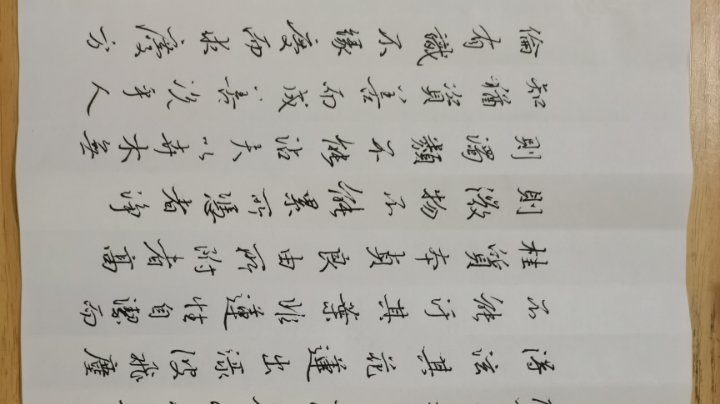 得泫其花蓮出淥波飛塵
不能汙其葉非蓮性自潔而
桂質本貞良由所附者高
則微物不能累所憑者淨
則濁類不能沾夫以卉木無
知猶資善而成善況乎人
倫有識不緣慶而求慶方